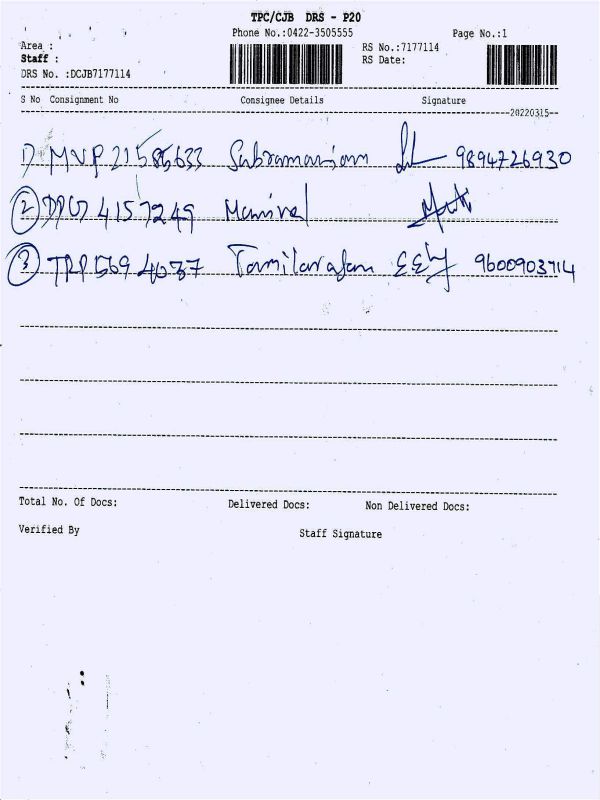 TPC/CJB DRS - P20
Phone No.:0422-3505555 Page No.:1
Area : RS No.:7177114
Staff : RS Date:
DRS No. :DCJB7177114
S No Consignment No Consignee Details Signature
20220315
1) MVP 21585633 Subramaniam 9894726930
2 4157249 Manivel
3 TRP 569 4037 Tamilarasan 9600903714
Total No. Of Docs: Delivered Docs: Non Delivered Docs:
Verified By Staff Signature